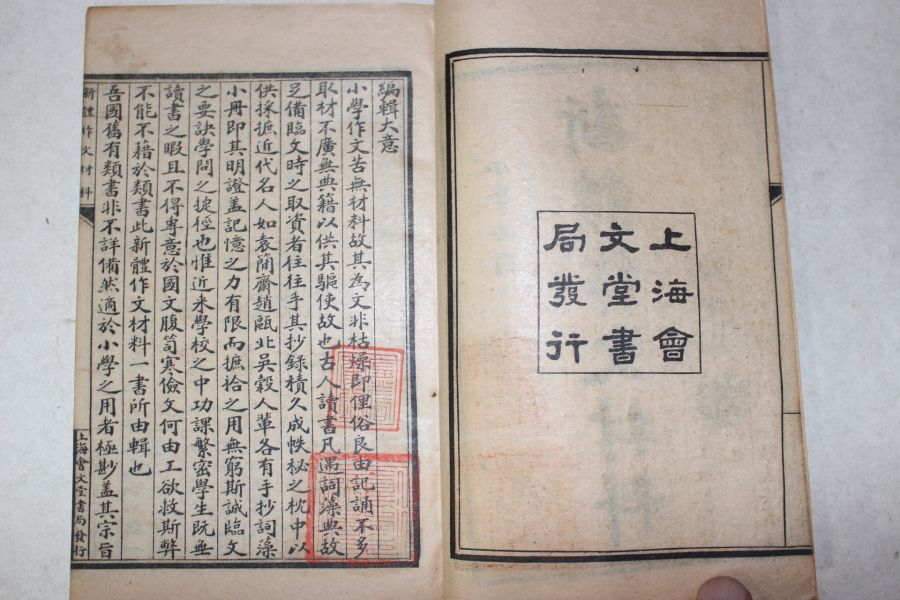 上海會
文堂書
局發行
編輯大意
小學作文苦無材料故其為文非枯燥即俚俗良由記誦不多
取材不廣無典籍以供其驅使故也古人讀書凡遇詞藻典故
足備臨文時之取資者往往手其抄錄積久成帙秘之枕中以
供採摭近代名人如袁簡齋趙甌北吳穀人輩各有手抄詞藻
小冊即其明證盖記憶之力有限而摭拾之用無窮斯誠臨文
之要訣學問之捷徑也惟近來學校之中功課繁密學生既無
讀書之暇且不得專意於國文腹笥寒儉文何由工欲救斯弊
不能不藉於類書此新體作文材料一書所由輯也
吾國舊有類書非不詳備然適於小學之用者極尠盖其宗旨
新體作文材料
上海會文堂書局發行